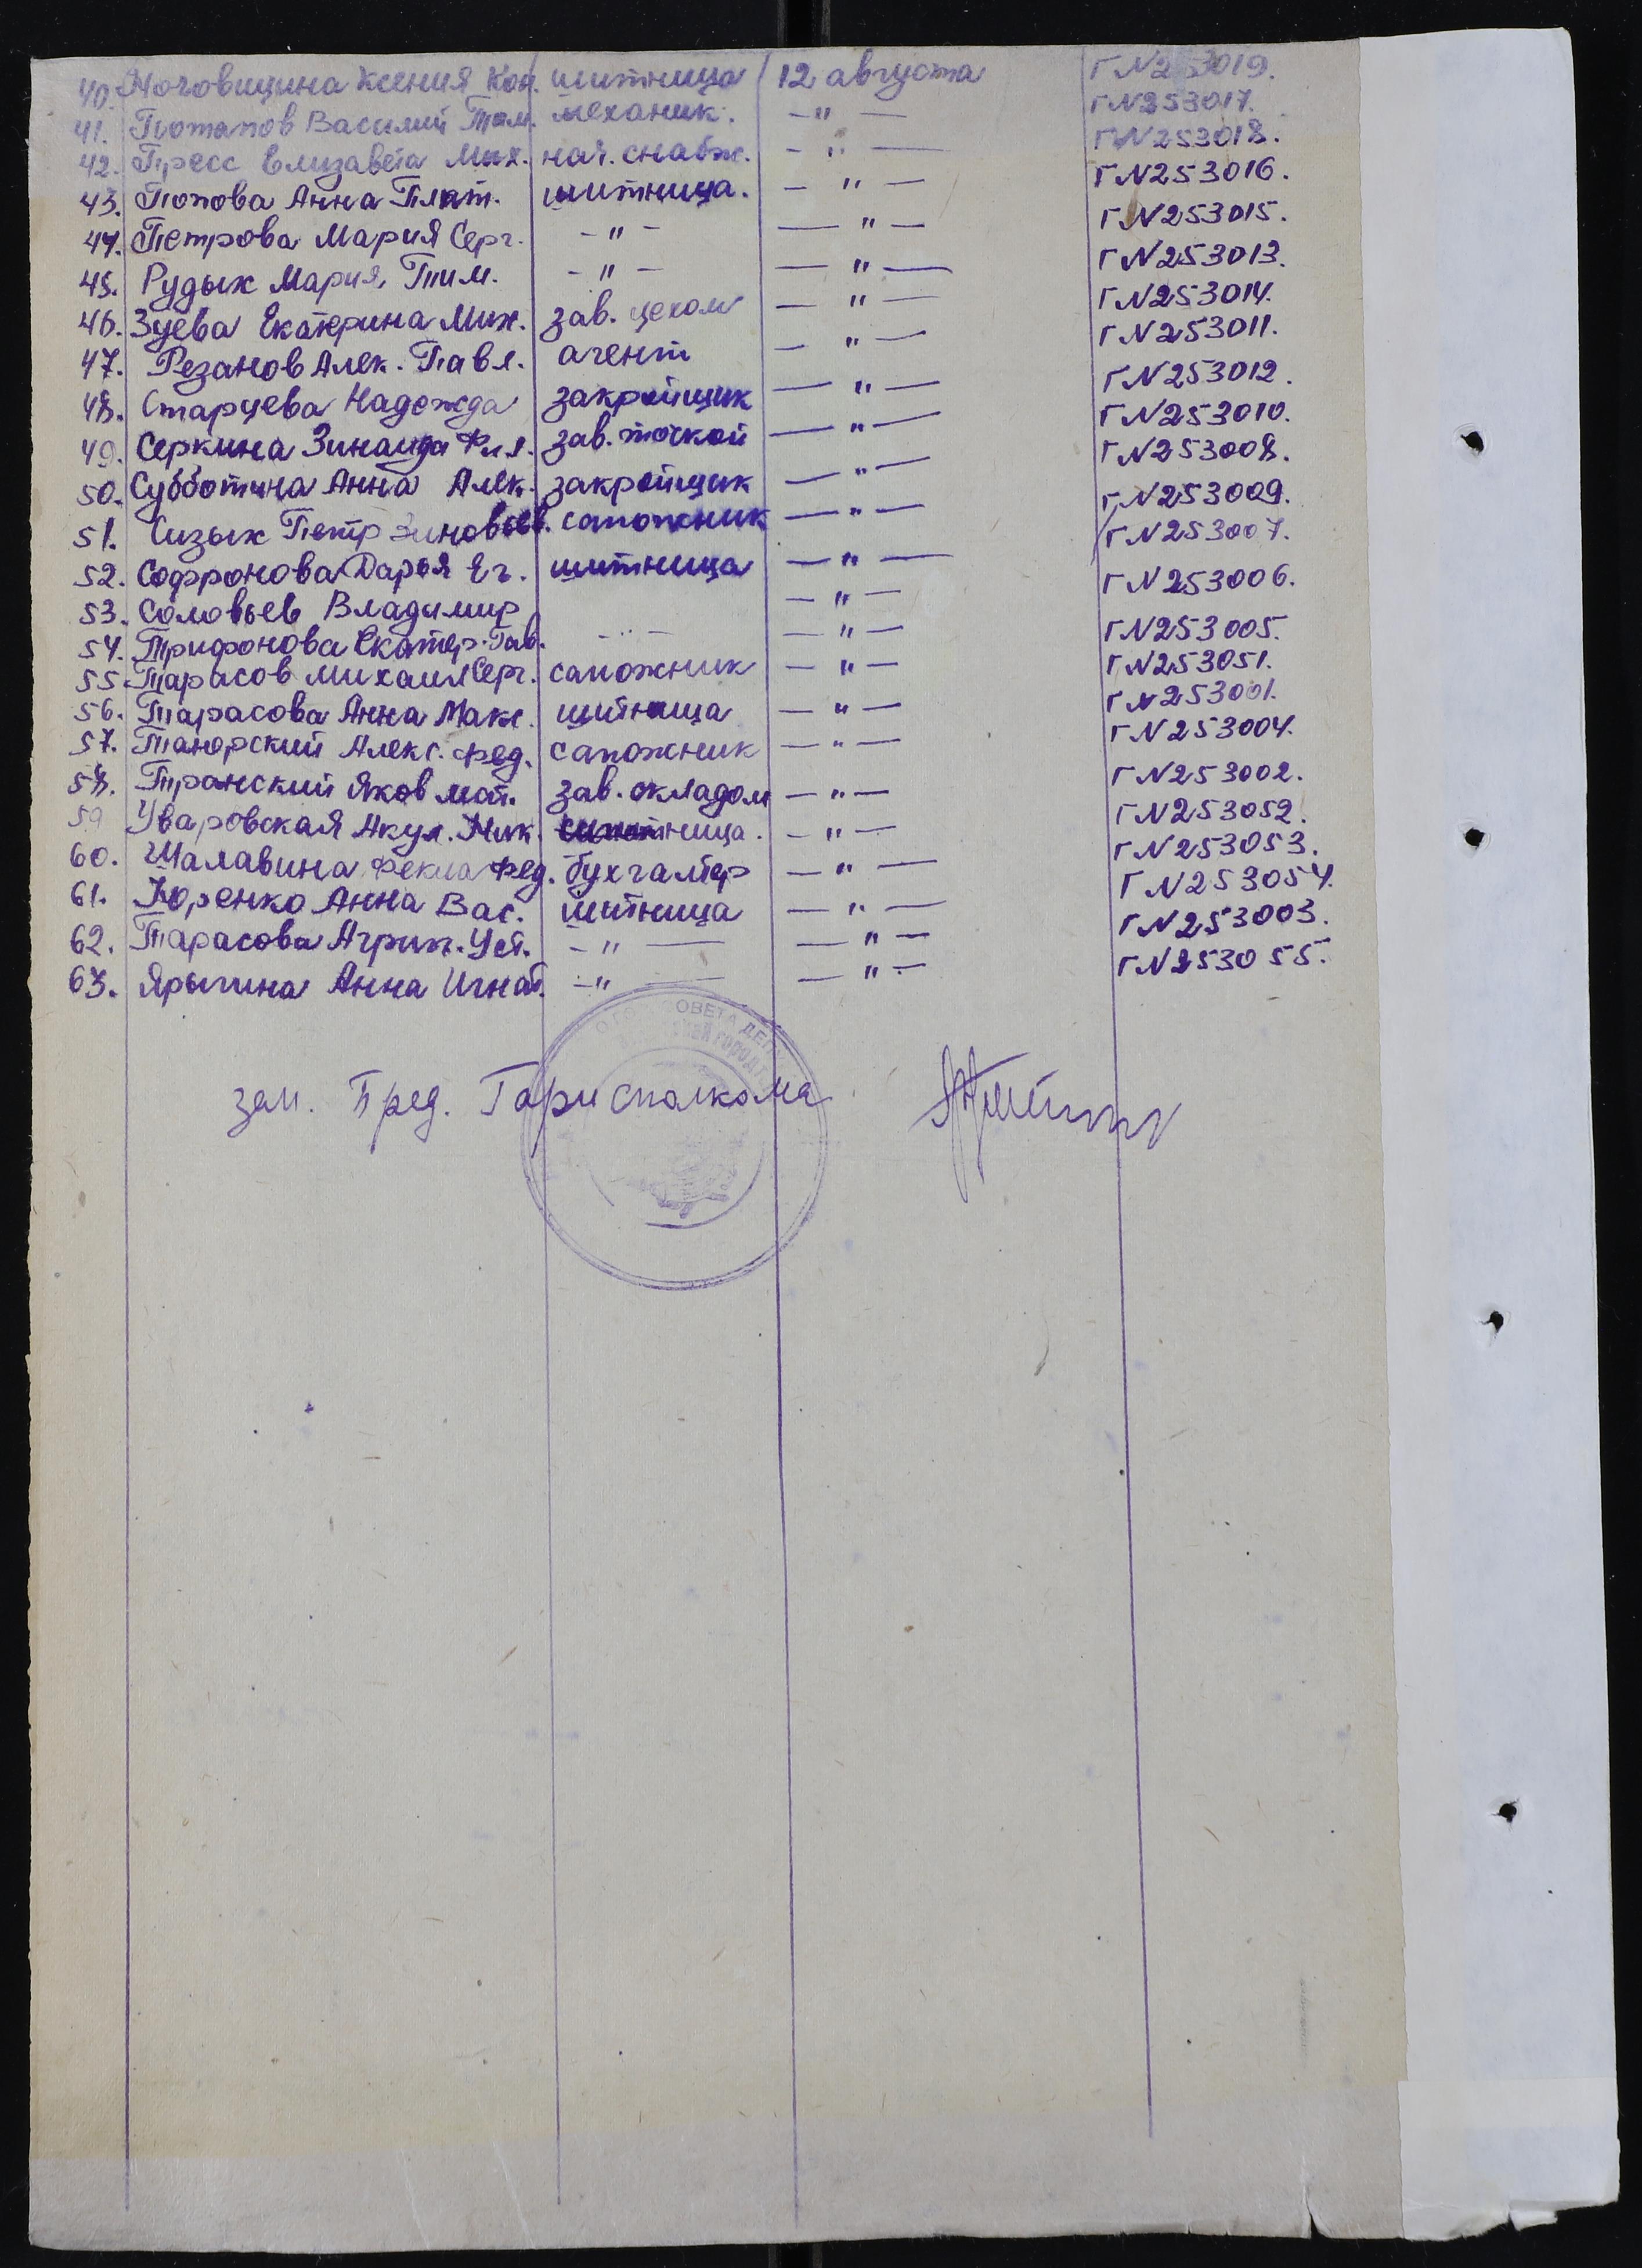 40. Ноговицина Ксения Кон. шитница 12 августа Г N 253019.
41. Потапов Василий механик. — " — Г N 253017.
42. Пресс Елизавета Мих. нач. снабж. — " — Г N 253018.
43. Попова Анна Плат. шитница. — " — Г N 253016.
44. Петрова Мария Серг. — " — — " — Г N 253015.
45. Рудых Мария Тим. — " — — " — Г N 253013.
46. Зуева Екатерина Мих. зав. цехом — " — Г N 253014.
47. Резанов Алек. Павл. агент — " — Г N 253011.
48. Старцева Надежда закройщик — " — Г N 253012.
49. Серкина Зинаида Фил. зав. точкой — " — Г N 253010.
50. Субботина Анна Алек. закройщик — " — Г N 253008.
51. Сизых Петр Зиновьев. сапожник — " — Г N 253009.
52. Софронова Дарья Ег. шитница — " — Г N 253007.
53. Соловьев Владимир — " — Г N 253006.
54. Трифонова Екатер. Гав. — " — — " — Г N 253005.
55. Тарасов Михаил Серг. сапожник — " — Г N 253051.
56. Тарасова Анна Макс. шитница — " — Г N 253001.
57. Танорский Алекс. Фед. сапожник — " — Г N 253004.
58. Транский Яков Мат. зав. складом — " — Г N 253002.
59 Уваровская Акул. Ник. шитница. — " — Г N 253052.
60. Шалавина Фекла Фед. бухгалтер — " — Г N 253053.
61. Юренко Анна Вас. шитница — " — Г N 253054.
62. Тарасова Агрип. Уст. — " — — " — Г N 253003.
63. Ярыгина Анна Игнат. — " — — " — Г N 253055.
СОВЕТА ДЕП
зам. Пред. Горисполкома